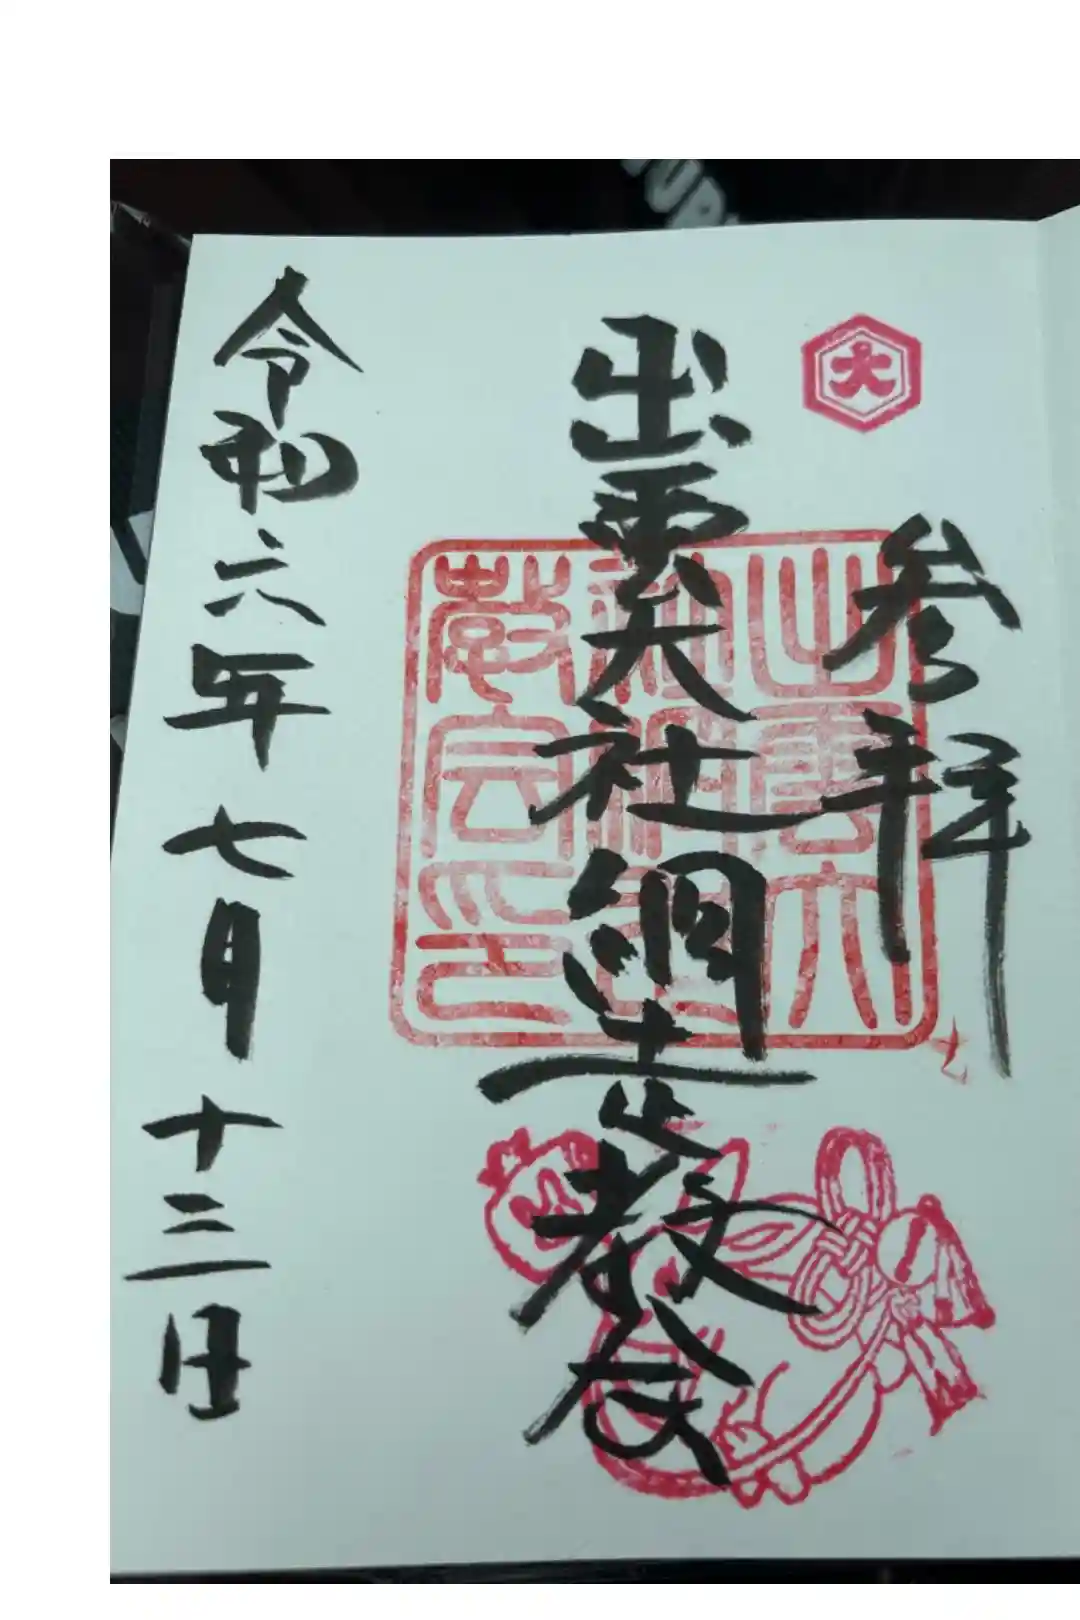 大
参拝
出雲大社網走教会
出雲大
社網走
教会印
令和六年七月十三日